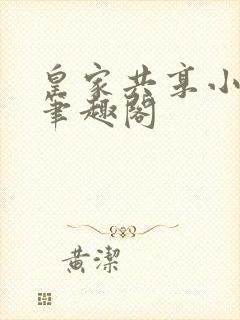 皇家共享小
筆趣閣
黃潔